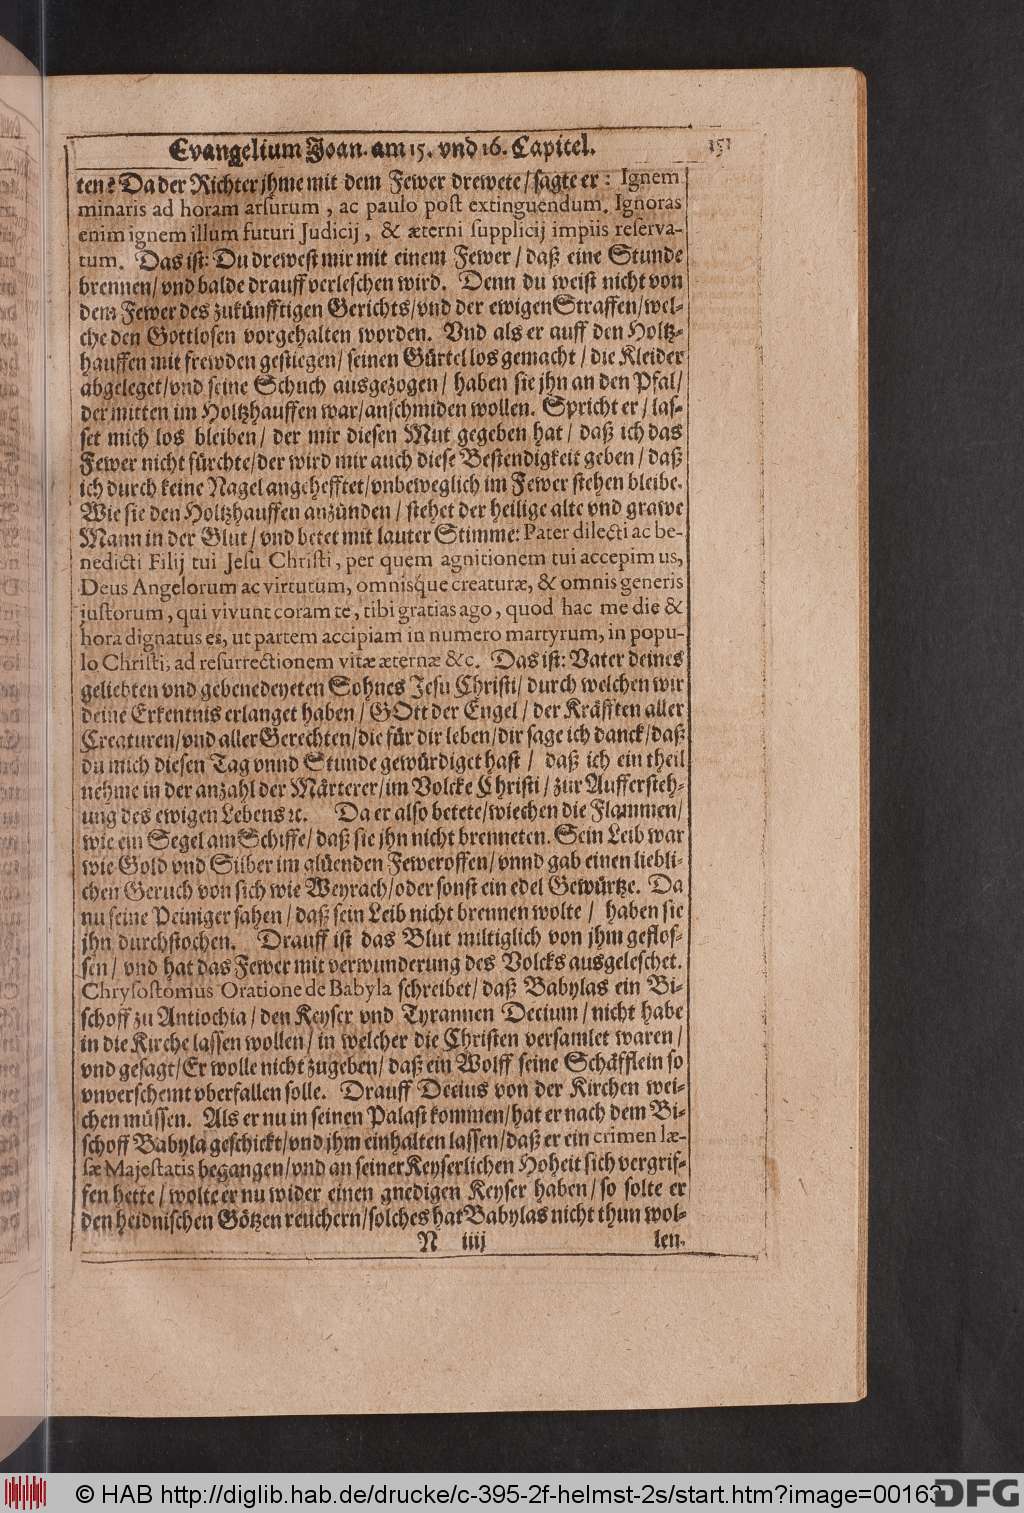 Evangelium Joan. am 15. vnd 16. Capitel. 151
ten? Da der Richter jhme mit dem Fewer drewete / sagte er: Ignem
minaris ad horam arsurum, ac paulo post extinguendum. Ignoras
enim ignem illum futuri Judicij, & æterni supplicij impiis reserva-
tum. Das ist: Du drewest mir mit einem Fewer / daß eine Stunde
brennen / vnd balde drauff verleschen wird. Denn du weist nicht von
dem Fewer des zukünfftigen Gerichts / vnd der ewigen Straffen / wel-
che den Gottlosen vorgehalten worden. Vnd als er auff den Holtz-
hauffen mit frewden gestiegen / seinen Gürtel los gemacht / die Kleider
abgeleget / vnd seine Schuch ausgezogen / haben sie jhn an den Pfal /
der mitten im Holtzhauffen war / anschmiden wollen. Spricht er / las-
set mich los bleiben / der mir diesen Mut gegeben hat / daß ich das
Fewer nicht fürchte / der wird mir auch diese Bestendigkeit geben / daß
ich durch keine Nagel angehefftet / vnbeweglich im Fewer stehen bleibe.
Wie sie den Holtzhauffen anzünden / stehet der heilige alte vnd grawe
Mann in der Glut / vnd betet mit lauter Stimme: Pater dilecti ac be-
nedicti Filij tui Jesu Christi, per quem agnitionem tui accepimus,
Deus Angelorum ac virtutum, omnisque creaturæ, & omnis generis
justorum, qui vivunt coram te, tibi gratias ago, quod hac me die &
hora dignatus es, ut partem accipiam in numero martyrum, in popu-
lo Christi, ad resurrectionem vitæ æternæ &c. Das ist: Vater deines
geliebten vnd gebenedeyeten Sohnes Jesu Christi / durch welchen wir
deine Erkentnis erlanget haben / GOtt der Engel / der Kräfften aller
Creaturen / vnd aller Gerechten / die für dir leben / dir sage ich danck / daß
du mich diesen Tag vnnd Stunde gewürdiget hast / daß ich ein theil
nehme in der anzahl der Märterer / im Volcke Christi / zur Aufferste­h-
ung des ewigen Lebens ꝛc. Da er also betete / wiechen die Flammen /
wie ein Segel am Schiffe / daß sie jhn nicht brenneten. Sein Leib war
wie Gold vnd Silber im glüenden Feweroffen / vnnd gab einen liebli-
chen Geruch von sich wie Weyrach / oder sonst ein edel Gewürtze. Da
nu seine Peiniger sahen / daß sein Leib nicht brennen wolte / haben sie
jhn durchstochen. Drauff ist das Blut miltiglich von jhm geflos-
sen / vnd hat das Fewer mit verwunderung des Volcks ausgeleschet.
Chrysostomus Oratione de Babyla schreibet / daß Babylas ein Bi-
schoff zu Antiochia / den Keyser vnd Tyrannen Decium / nicht habe
in die Kirche lassen wollen / in welcher die Christen versamlet waren /
vnd gesagt / Er wolle nicht zugeben / daß ein Wolff seine Schäfflein so
vnverschemt vberfallen solle. Drauff Decius von der Kirchen wei-
chen müssen. Als er nu in seinen Palast kommen / hat er nach dem Bi-
schoff Babyla geschickt / vnd jhm einhalten lassen / daß er ein crimen læ-
sæ Majestatis begangen / vnd an seiner Keyserlichen Hoheit sich vergrif-
fen hette / wolte er nu wider einen gnedigen Keyser haben / so solte er
den heidnischen Götzen reuchern / solches hat Babylas nicht thun wol-
N iiij len.
© HAB http://diglib.hab.de/drucke/c-395-2f-helmst-2s/start.htm?image=00163
DFG